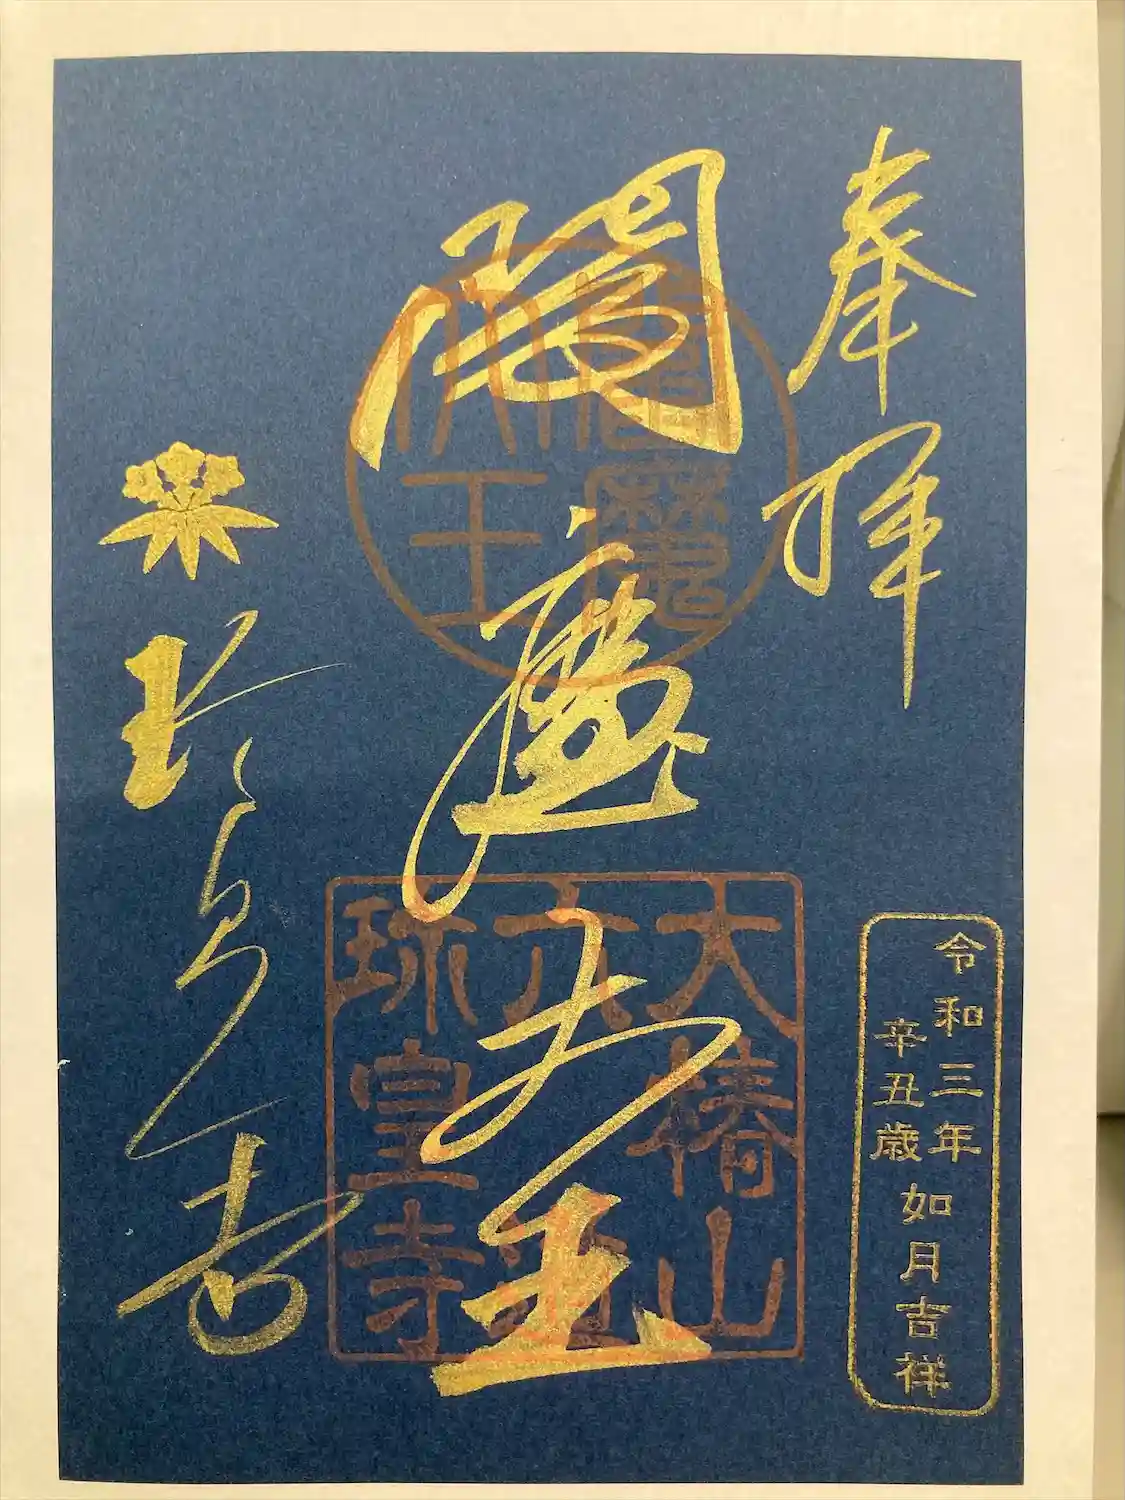 奉拝
閻魔大王
閻魔
大王
大椿山
六道
珍皇寺
珍皇寺
令和三年
辛丑歳
如月吉祥